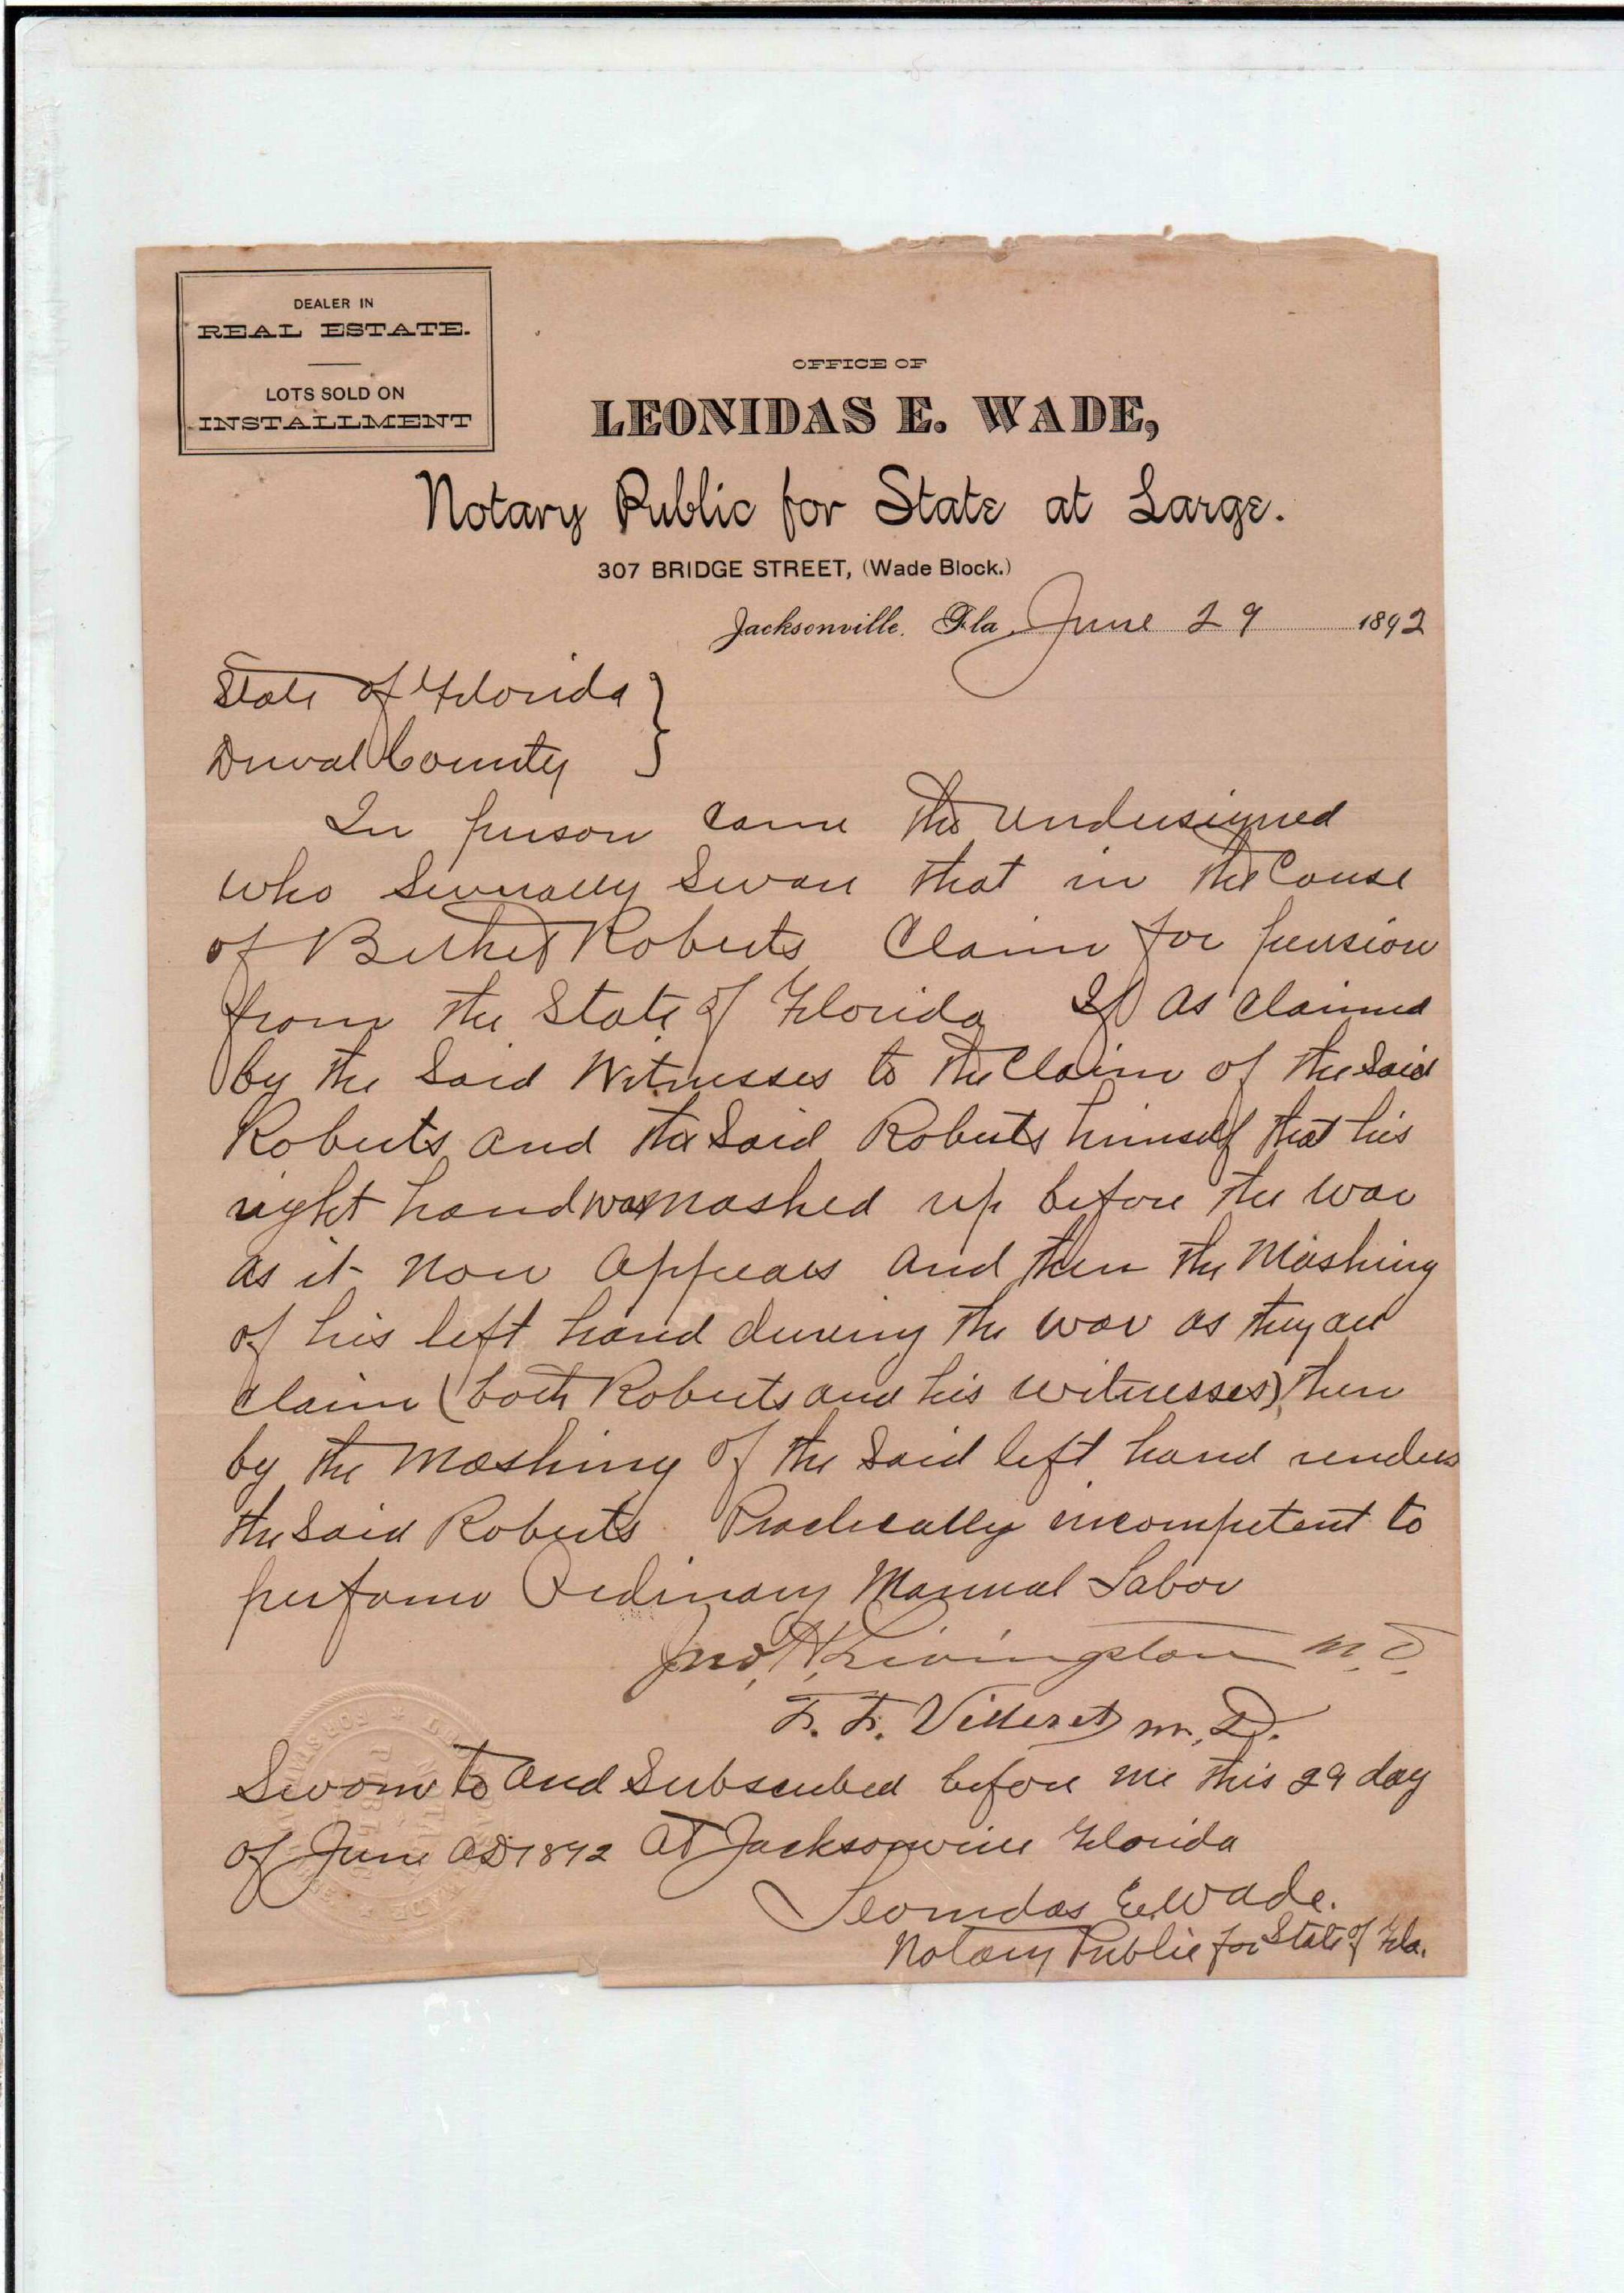 DEALER IN
REAL ESTATE.
LOTS SOLD ON
INSTALLMENT
OFFICE OF
LEONIDAS E. WADE,
Notary Public for State at Large.
307 BRIDGE STREET, (Wade Block.)
Jacksonville, Fla. June 29 1892
State of Florida }
Duval County
In person came the undersigned
who severally swear that in the Cause
of Bethet Roberts Claim for pension
from the State of Florida If as claimed
by the Said Witnesses to the Claim of the Said
Roberts and the Said Roberts himself that his
right hand was mashed up before the war
as it now appears and then the Mashing
of his left hand during the war as they all
claim (both Roberts and his witnesses) then
by the mashing of the Said left hand renders
the Said Roberts Practically incompetent to
perform Ordinary Manual Labor
Jno. H. Livingston M.D.
F. F. M.D.
Sworn to and Subscribed before me this 29 day
of June AD 1892 at Jacksonville Florida
Leonidas E. Wade.
Notary Public for State of Fla.